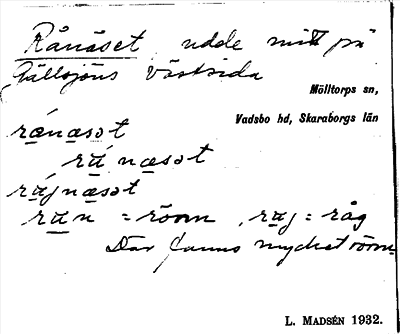 Rånäset udde mitt på
Hällsjöns västsida
Mölltorps sn,
Vadsbo hd, Skaraborgs län
rá̱na̱sət
rá̱ na̱sət
rá̱jna̱sət
rä̱n = rönn, rä̱j = råg
Där fanns mycket rönn.
L. MADSÉN 1932.